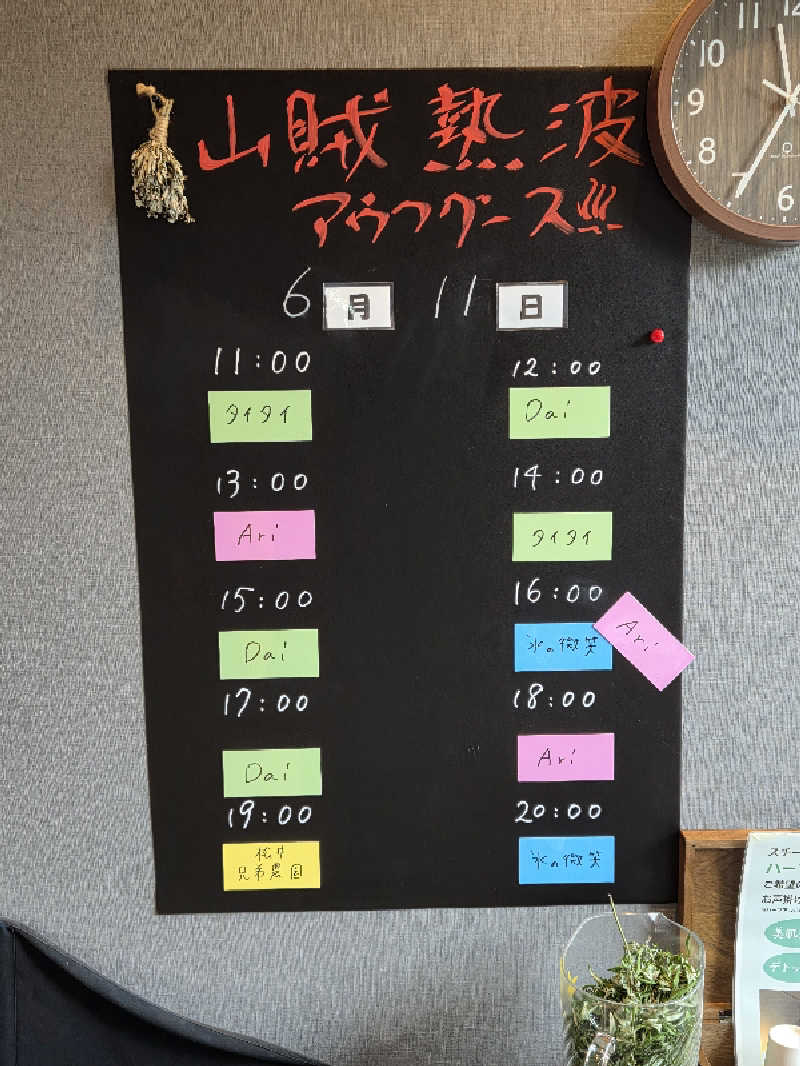 山賊熱波
アウフグース
6月11日
11:00
タイタイ
12:00
Dai
13:00
Ari
14:00
タイタイ
15:00
Dai
16:00
氷の微笑
Ari
17:00
Dai
18:00
Ari
19:00
兄弟農園
20:00
氷の微笑
11
12
10
9
8
7
6
ご希望の
お声掛け
美肌
デト